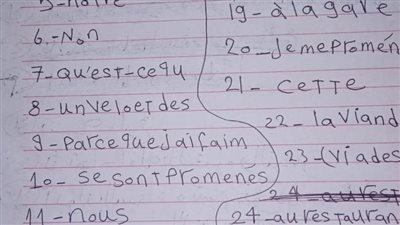 5-notre
6.-Non
7-qu'est-cequ
8-unveloetdes
9-parcequejaifaim
10-sesontpromenés
11-nous
19-àlagare
20-Jemepromén
21-CETTE
22-laviand
23-(viades
24-aurest
24-aurestauran